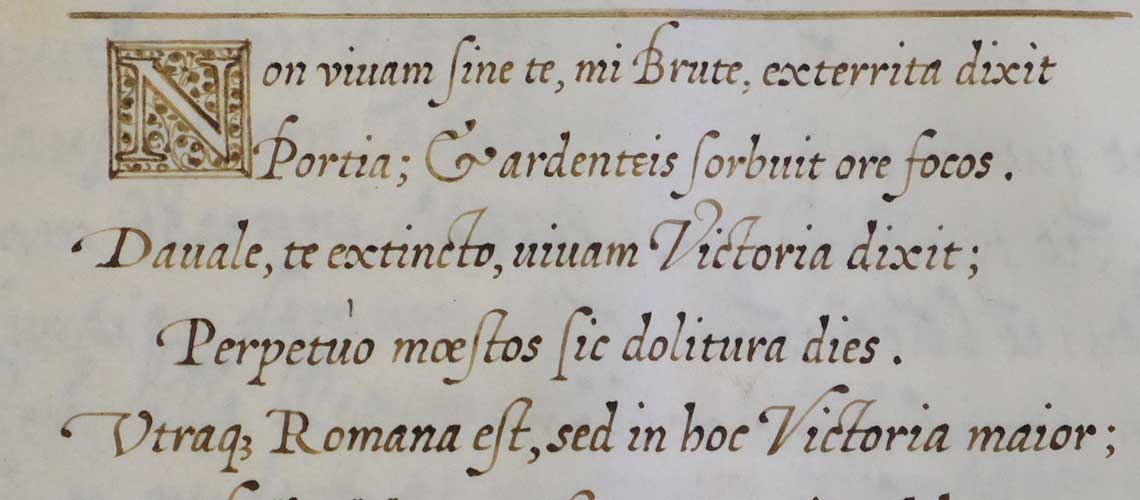 Non viuam ſine te, mi Brute, exterrita dixit
Portia; & ardenteis ſorbuit ore focos.
Dauale, te extincto, uiuam Victoria dixit;
Perpetuò mœſtos ſic dolitura dies.
Vtraqꝫ Romana eſt, sed in hoc Victoria maior;